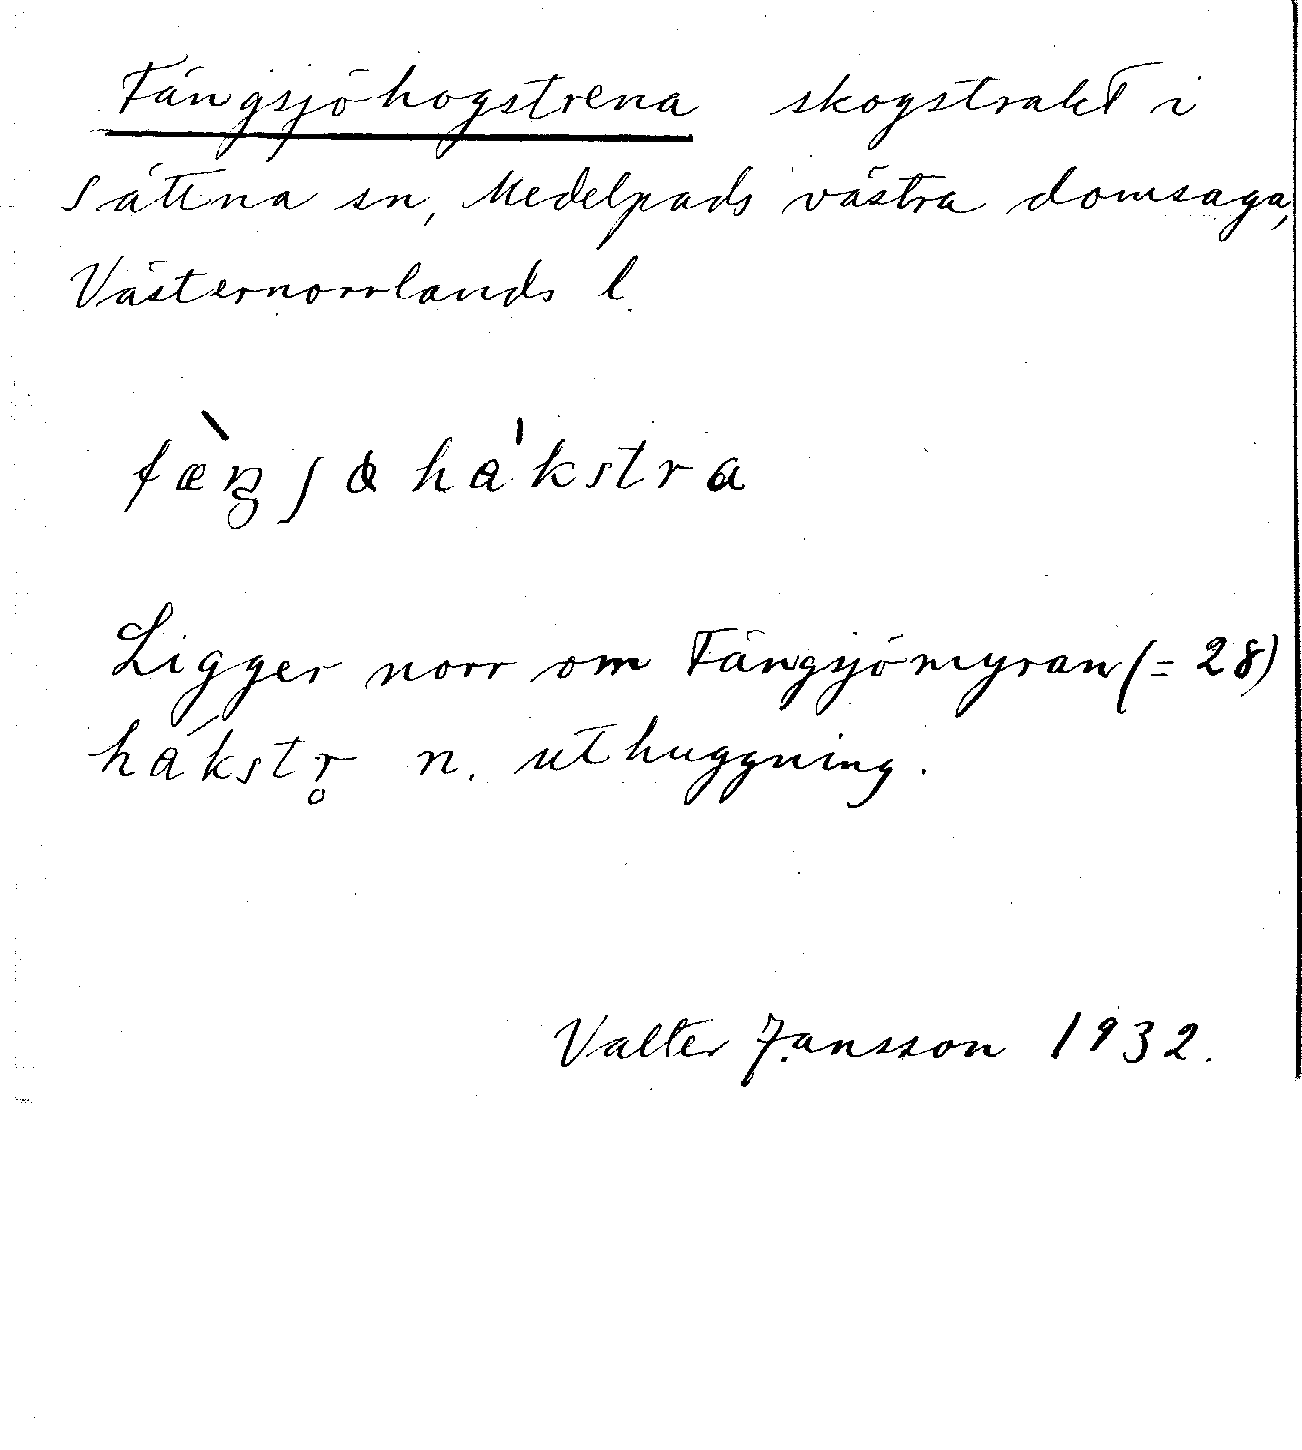 Fängsjöhogstrena skogstrakt i
Sättna sn, Medelpads västra domsaga,
Västernorrlands l.
Ligger norr om Fängsjömyran (= 28)
n. uthuggning.
Valter Jansson 1932.